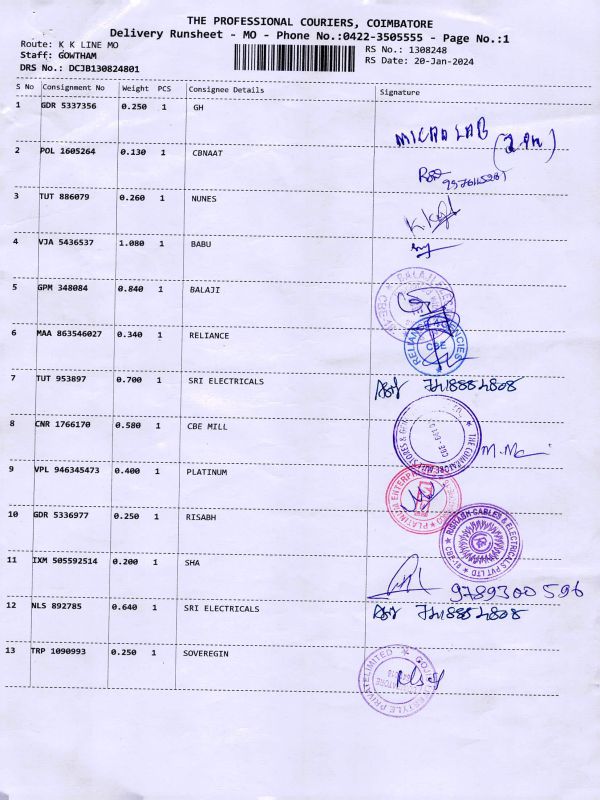 THE PROFESSIONAL COURIERS, COIMBATORE
Delivery Runsheet - MO - Phone No.:0422-3505555 - Page No.:1
Route: K K LINE MO
RS No.: 1308248
Staff: GOWTHAM
RS Date: 20-Jan-2024
DRS No.: DCJB130824801
S No Consignment No Weight PCS Consignee Details Signature
1 GDR 5337356 0.250 1 GH
MICRO LAB
2 POL 1605264 0.130 1 CBNAAT
3 TUT 886079 0.260 1 NUNES
4 VJA 5436537 1.080 1 BABU
5 GPM 348084 0.840 1 BALAJI
BALAJI
6 MAA 863546027 0.340 1 RELIANCE
RELIANCE AGENCIES
CBE
7 TUT 953897 0.700 1 SRI ELECTRICALS
8 CNR 1766170 0.580 1 CBE MILL
THE COIMBATORE MILL STORES
9 VPL 946345473 0.400 1 PLATINUM
PLATINUM ENTERPRISES
10 GDR 5336977 0.250 1 RISABH
RISHABH CABLES & ELECTRICALS PVT LTD CBE-18
11 IXM 505592514 0.200 1 SHA
9789300596
12 NLS 892785 0.640 1 SRI ELECTRICALS
13 TRP 1090993 0.250 1 SOVEREGIN
PRIVATE LIMITED